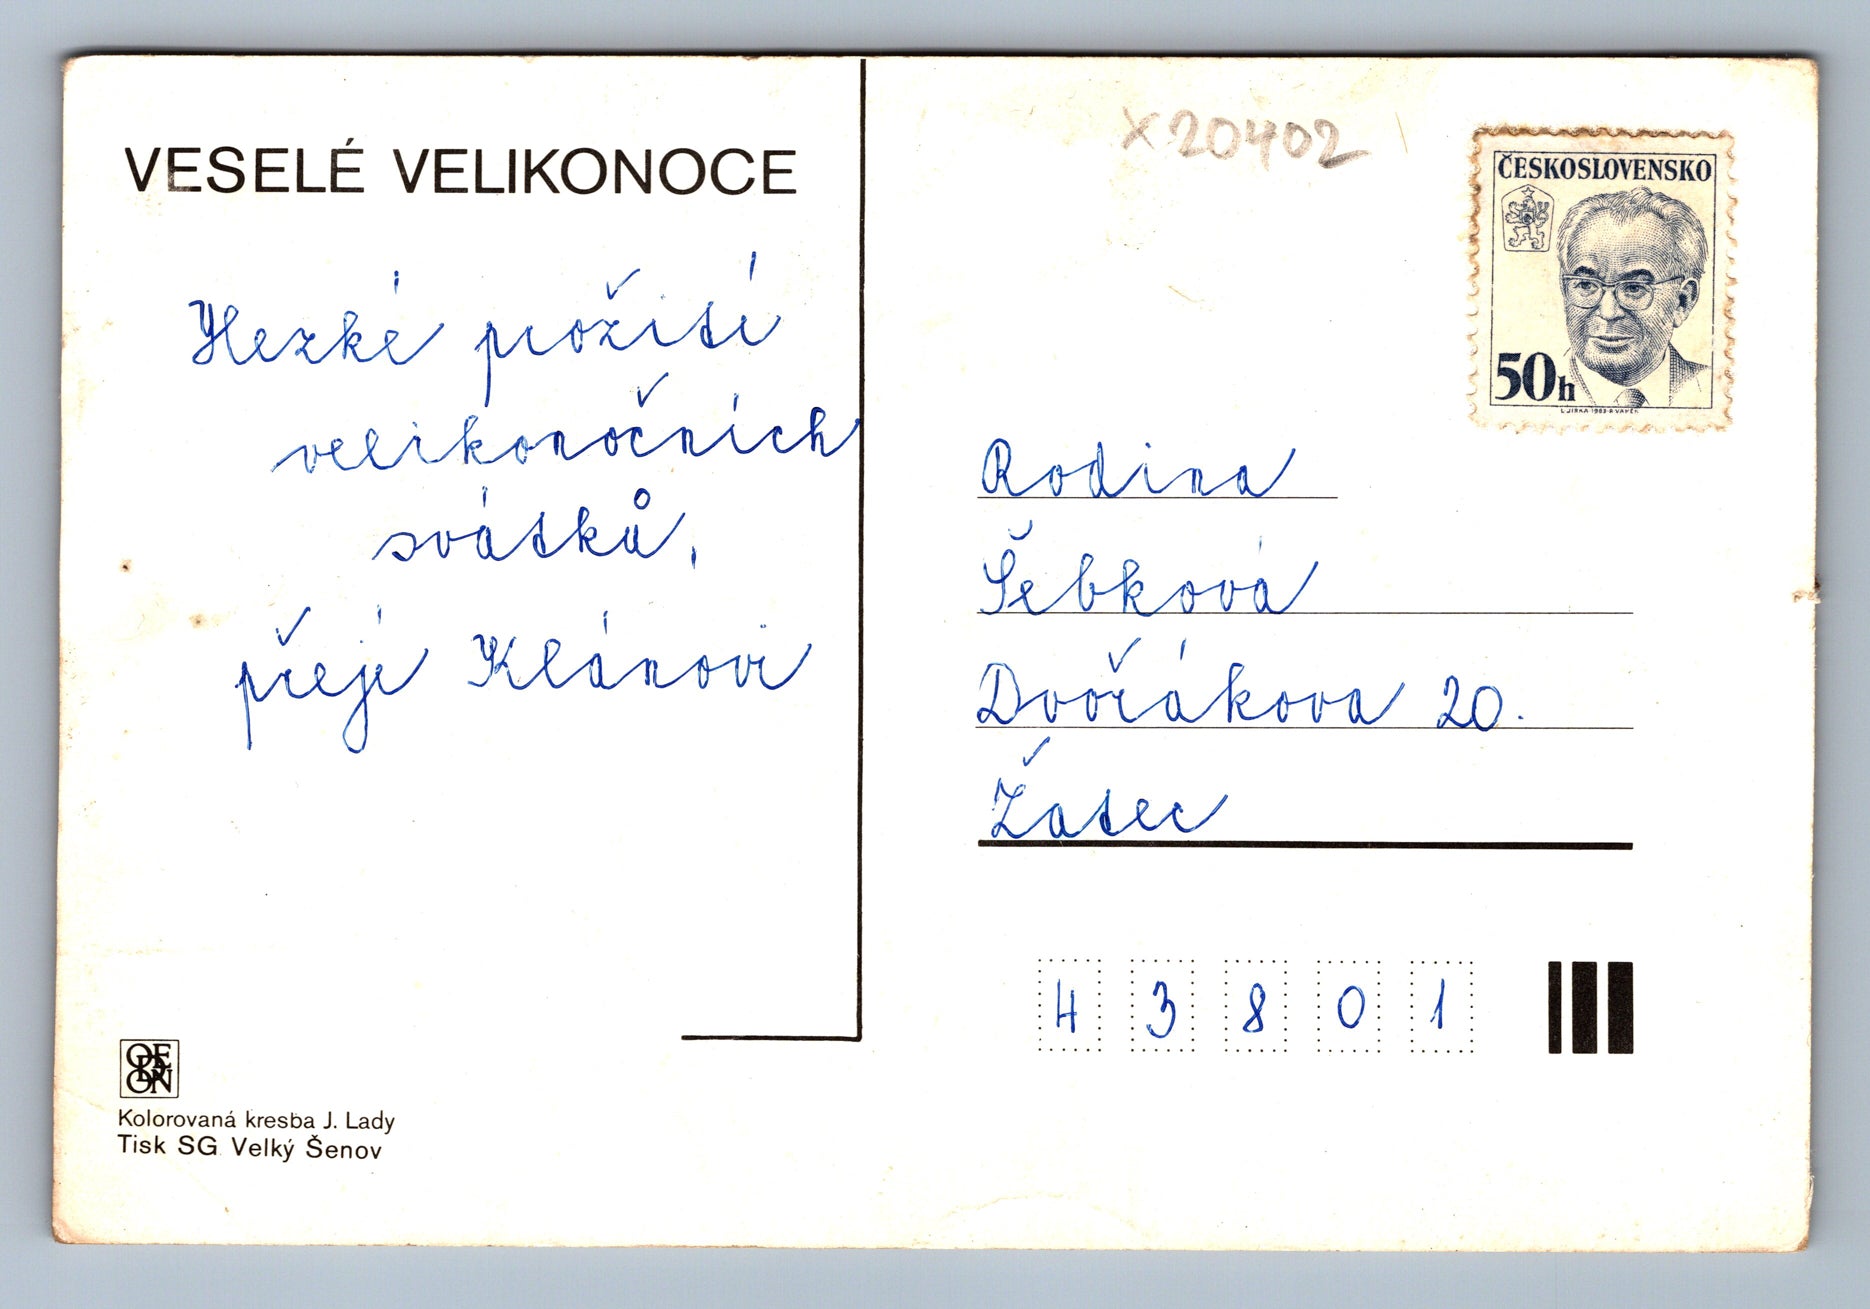 VESELÉ VELIKONOCE
Hezké prožití
velikonočních
svátků,
přejí Klánovi
ODEON
Kolorovaná kresba J. Lady
Tisk SG Velký Šenov
X20402
ČESKOSLOVENSKO
50h
L.JIRKA 1983 R VANĚK
Rodina
Šebková
Dvořákova 20.
Žatec
4 3 8 0 1